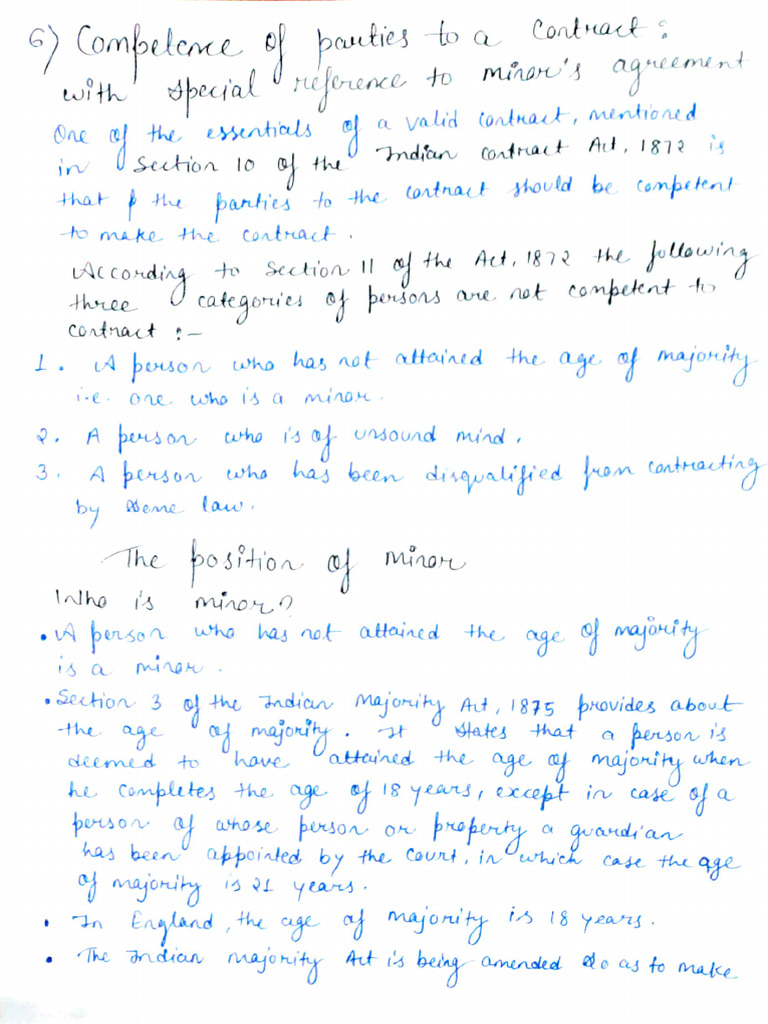 6) Competence of parties to a contract :
with special reference to minor's agreement
One of the essentials of a valid contract, mentioned
in Section 10 of the Indian contract Act, 1872 is
that the parties to the contract should be competent
to make the contract.
According to Section 11 of the Act, 1872 the following
three categories of persons are not competent to
contract :-
1. A person who has not attained the age of majority
i.e. one who is a minor.
2. A person who is of unsound mind.
3. A person who has been disqualified from contracting
by some law.
The position of minor
Who is minor?
• A person who has not attained the age of majority
is a minor.
• Section 3 of the Indian Majority Act, 1875 provides about
the age of majority. It states that a person is
deemed to have attained the age of majority when
he completes the age of 18 years, except in case of a
person of whose person or property a guardian
has been appointed by the court, in which case the age
of majority is 21 years.
• In England, the age of majority is 18 years.
• The Indian majority Act is being amended so as to make